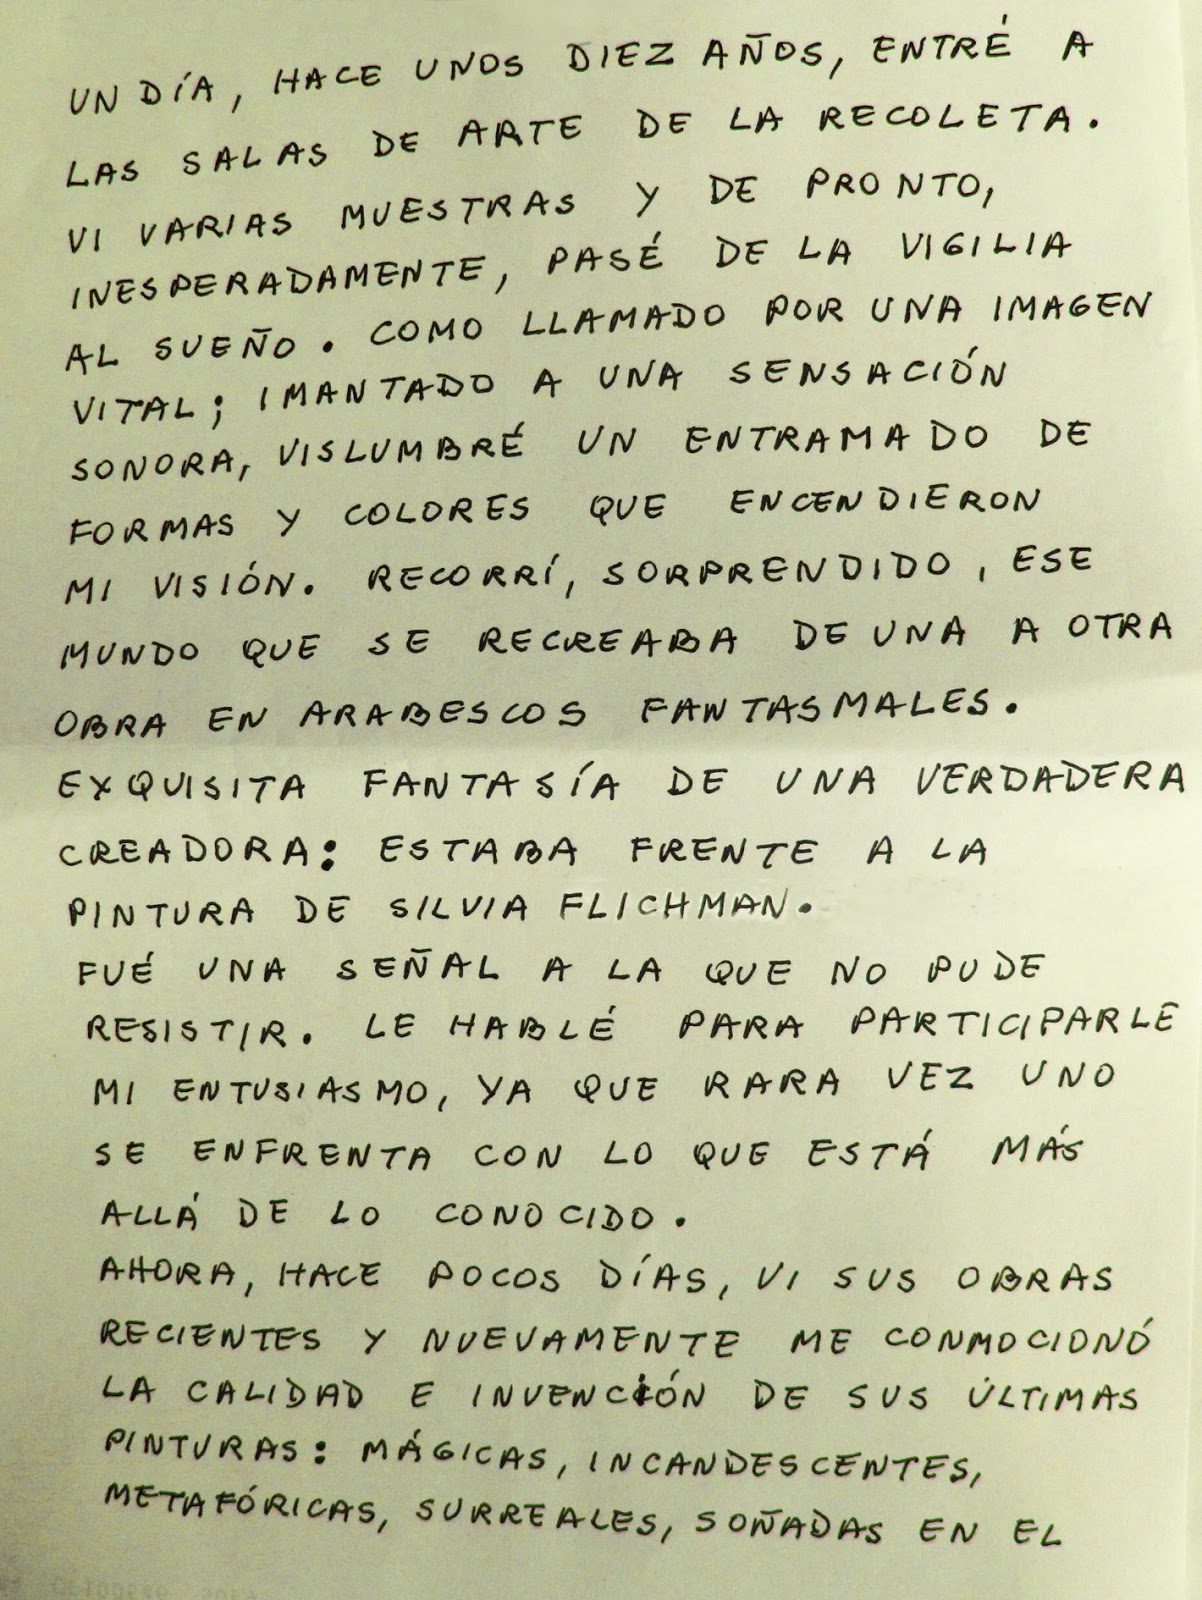 UN DÍA, HACE UNOS DIEZ AÑOS, ENTRÉ A
LAS SALAS DE ARTE DE LA RECOLETA.
VI VARIAS MUESTRAS Y DE PRONTO,
INESPERADAMENTE, PASÉ DE LA VIGILIA
AL SUEÑO. COMO LLAMADO POR UNA IMAGEN
VITAL; IMANTADO A UNA SENSACIÓN
SONORA, VISLUMBRÉ UN ENTRAMADO DE
FORMAS Y COLORES QUE ENCENDIERON
MI VISIÓN. RECORRÍ, SORPRENDIDO, ESE
MUNDO QUE SE RECREABA DE UNA A OTRA
OBRA EN ARABESCOS FANTASMALES.
EXQUISITA FANTASÍA DE UNA VERDADERA
CREADORA: ESTABA FRENTE A LA
PINTURA DE SILVIA FLICHMAN.
FUÉ UNA SEÑAL A LA QUE NO PUDE
RESISTIR. LE HABLÉ PARA PARTICIPARLE
MI ENTUSIASMO, YA QUE RARA VEZ UNO
SE ENFRENTA CON LO QUE ESTÁ MÁS
ALLÁ DE LO CONOCIDO.
AHORA, HACE POCOS DÍAS, VI SUS OBRAS
RECIENTES Y NUEVAMENTE ME CONMOCIONÓ
LA CALIDAD E INVENCIÓN DE SUS ÚLTIMAS
PINTURAS: MÁGICAS, INCANDESCENTES,
METAFÓRICAS, SURREALES, SOÑADAS EN EL